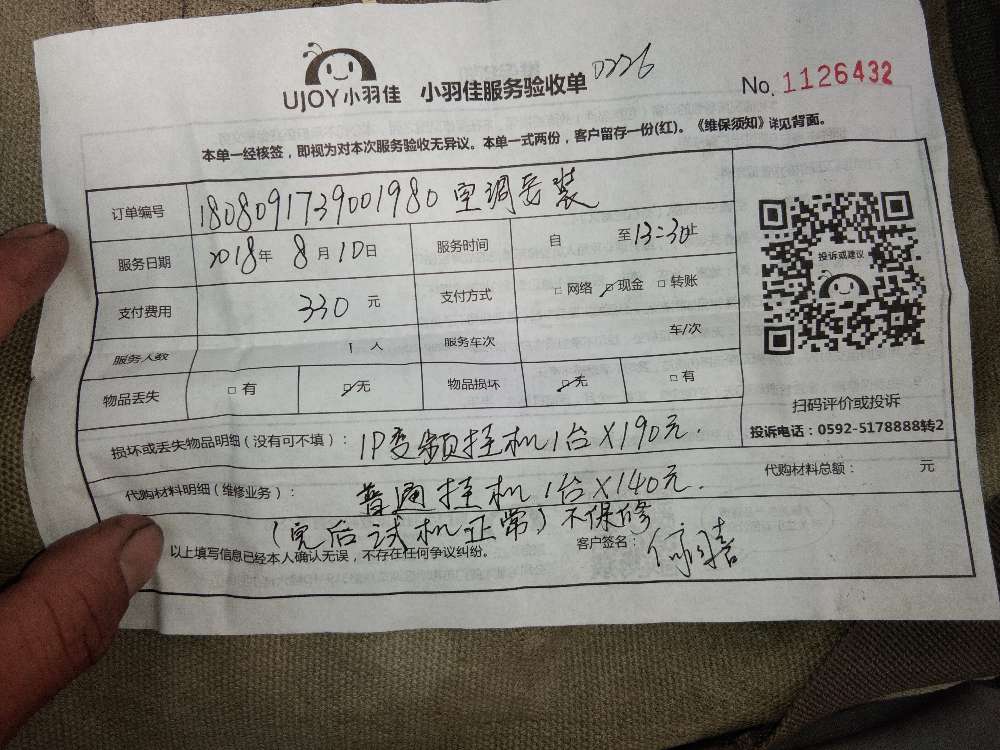 UJOY小羽佳 小羽佳服务验收单 0226
No. 1126432
本单一经核签，即视为对本次服务验收无异议。本单一式两份，客户留存一份(红)。《维保须知》详见背面。
订单编号 1808091739001980 空调安装
服务日期 2018年 8月 10日 服务时间 自 至13:30止
支付费用 330 元 支付方式 □ 网络 ☑ 现金 □ 转账
服务人数 1 人 服务车次 车/次
物品丢失 □ 有 ☑ 无 物品损坏 ☑ 无 □ 有
投诉或建议
扫码评价或投诉
投诉电话：0592-5178888转2
损坏或丢失物品明细 (没有可不填)： 1P变频挂机1台×190元.
代购材料明细 (维修业务)： 普通挂机1台×140元. 代购材料总额： 元
(完后试机正常) 不保修
以上填写信息已经本人确认无误，不存在任何争议纠纷。 客户签名：